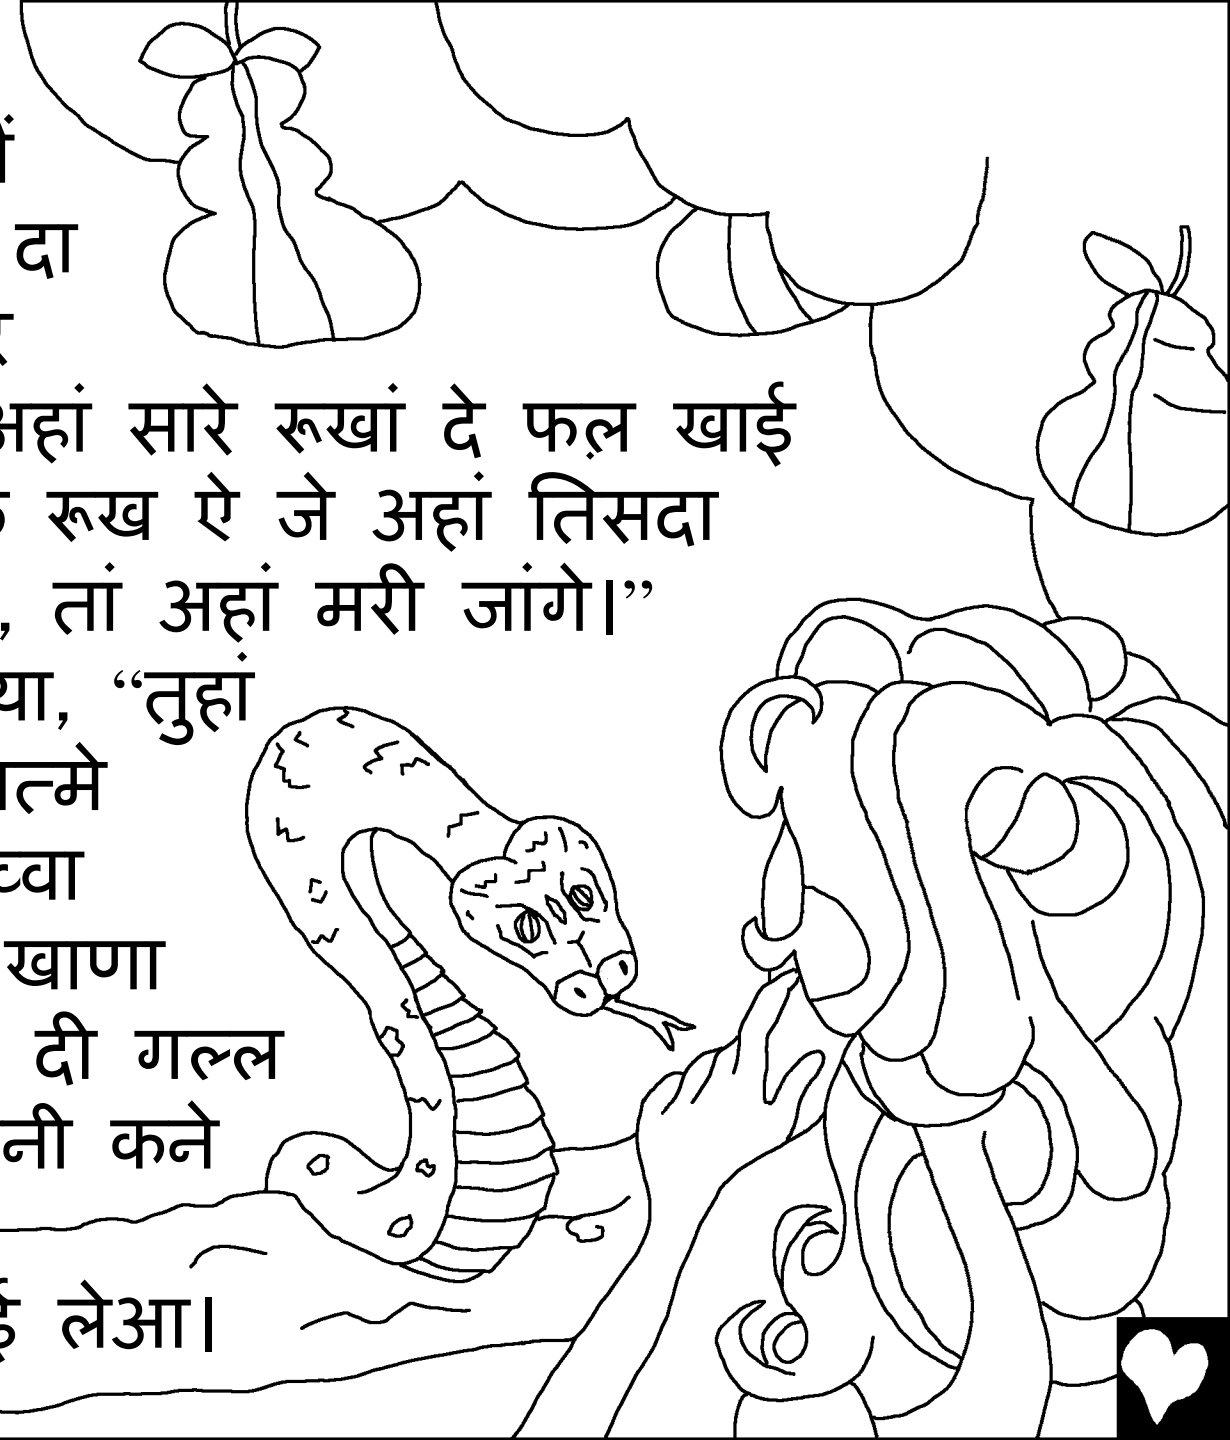 दा
अहां सारे रूखां दे फल़ खाई
रूख ऐ जे अहां तिसदा
, तां अहां मरी जांगे।”
“तुहां
खाणा
दी गल्ल
कने
लेआ।